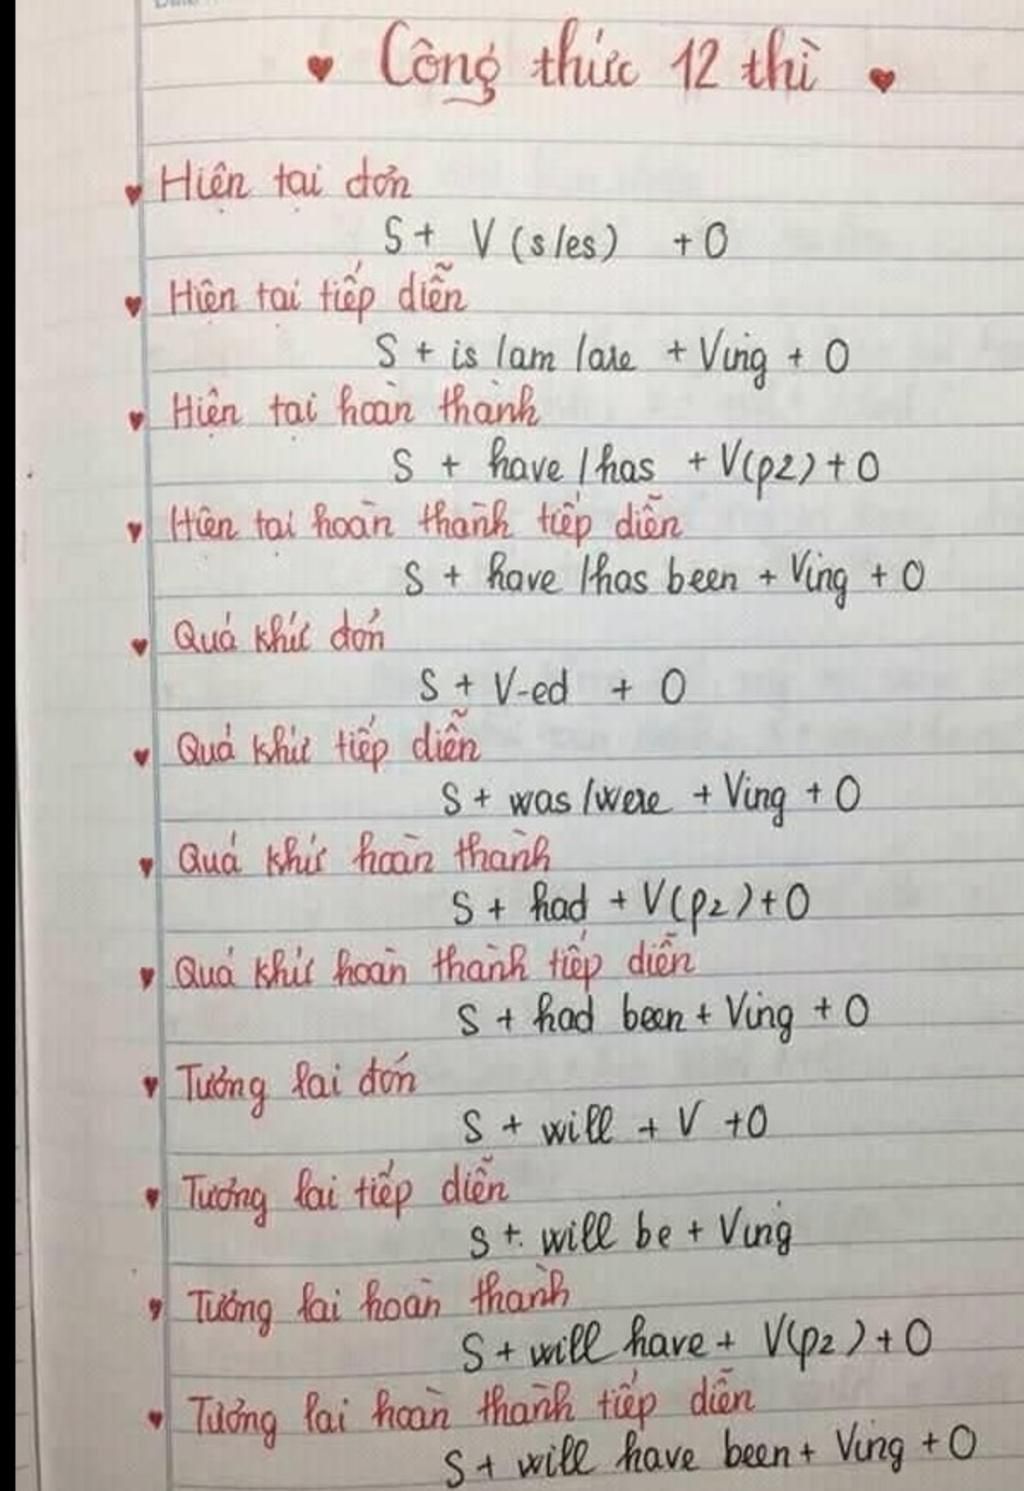 Công thức 12 thì
Hiện tại đơn
S + V (s/es) + O
Hiện tại tiếp diễn
S + is /am /are + Ving + O
Hiện tại hoàn thành
S + have / has + V(p2) + O
Hiện tại hoàn thành tiếp diễn
S + have /has been + Ving + O
Quá khứ đơn
S + V-ed + O
Quá khứ tiếp diễn
S + was /were + Ving + O
Quá khứ hoàn thành
S + had + V(p2) + O
Quá khứ hoàn thành tiếp diễn
S + had been + Ving + O
Tương lai đơn
S + will + V + O
Tương lai tiếp diễn
S + will be + Ving
Tương lai hoàn thành
S + will have + V(p2) + O
Tương lai hoàn thành tiếp diễn
S + will have been + Ving + O